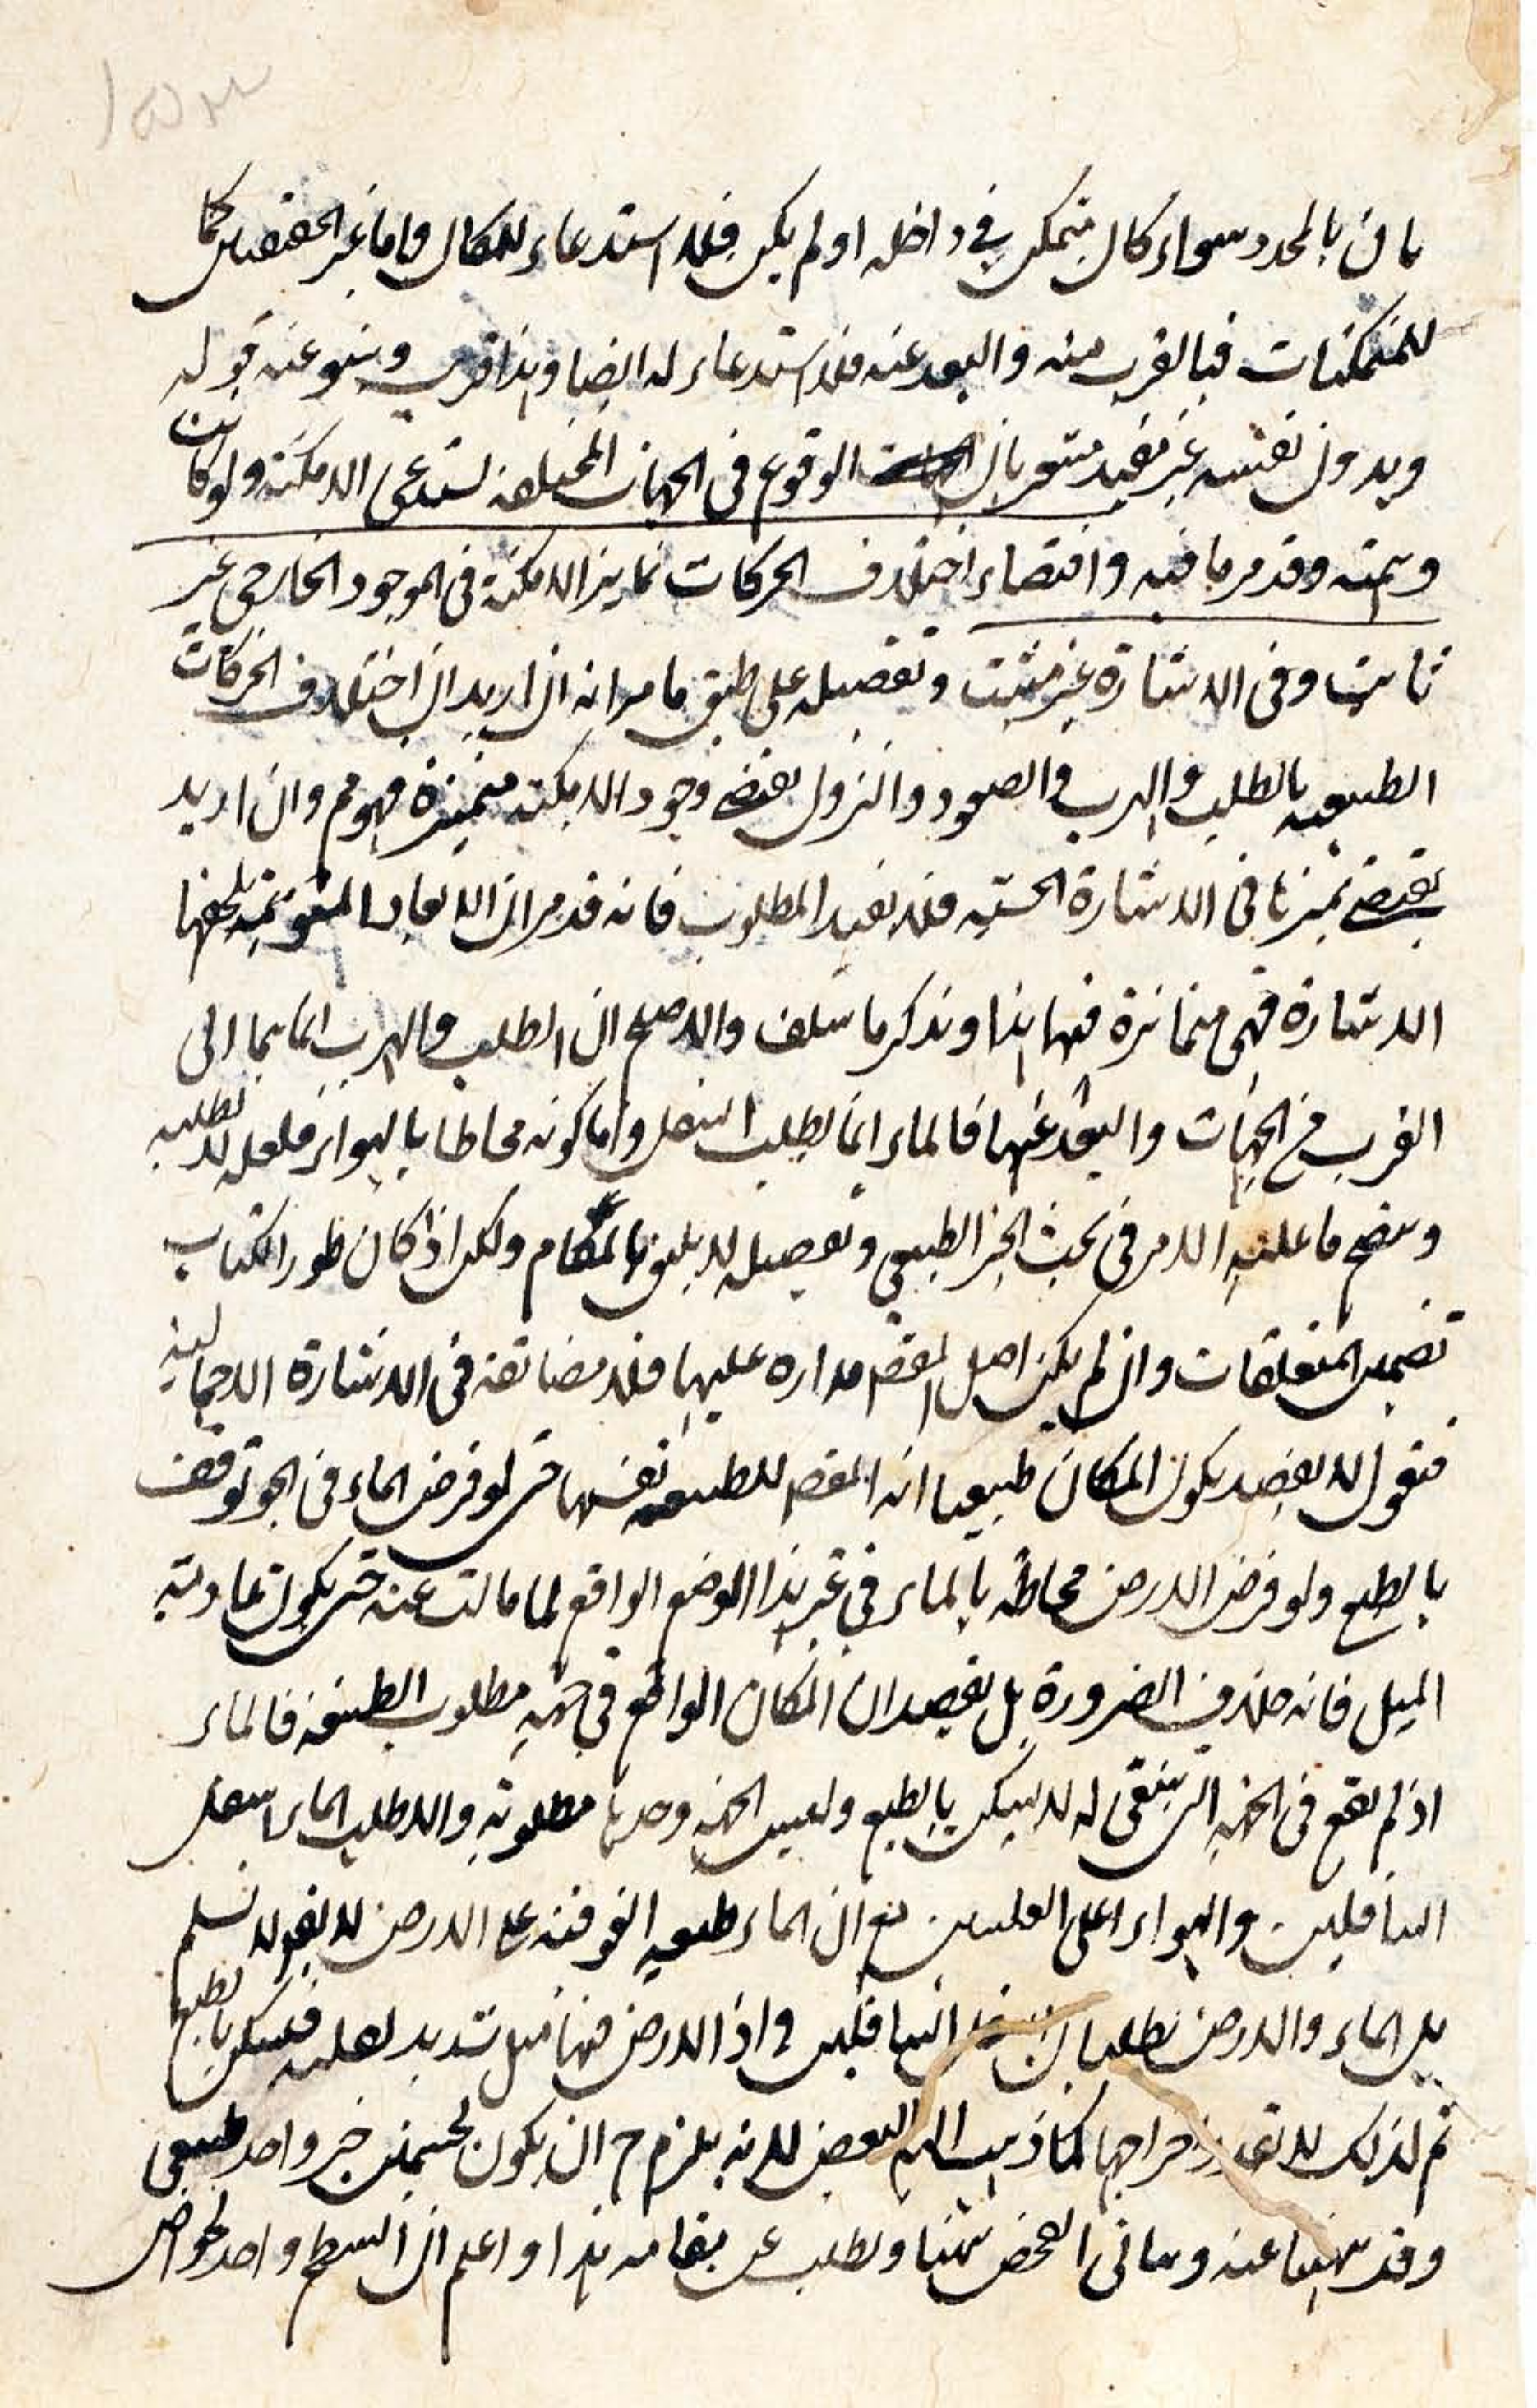 بان بالمحدد سواء كان متمكن في داخله او لم يكن فلا استدعاء للمكان واما غير الحقيقيين كما
للمتمكنات فبالقرب منه والبعد عنه فلا استدعاء له ايضا وهذا قريب وينبو عنه قوله
وبدون نفسه غير مفيد مشعر بان الوقوع في الجهات المختلفة يستدعى الامكنة ولو كانت
وهمية وقد مر ما فيه واقتضاء اختلاف الحركات تمايز الامكنة في الموجود الخارجى غير
ثابت وفى الاشارة غير مثبت وتفصيله على طبق ما مر انه ان اريد ان اختلاف الحركات
الطبيعيه بالطلب والهرب والصعود والنزول يقتضى وجود الامكنة متميزة فهو مم وان اريد
يقتضى تميزها في الاشارة الحسيه فلا يفيد المطلوب فانه قد مر ان الابعاد المتوهمة يلحقها
الاشارة فهى متمائزة فيها هذا وتذكر ما سلف والاصلح ان الطلب والهرب انما هما الى
القرب من الجهات والبعد عنها فالماء انما يطلب السفل واما كونه محاطا بالهواء فلعله لا يطلبه
وسيتضح ما عليه الامر في بحث الحيز الطبيعي وتفصيله لا يليق بالمقام ولكن اذا كان طور الكتاب
تضمين المتعلقات وان لم يكن اصل المقصد مداره عليها فلا مضائقة في الاشارة الاجمالية
فنقول لا يقصد بكون المكان طبيعيا انه المقصد للطبيعة نفسها حتى لو فرض الماء في الجو توقف
بالطبع ولو فرض الارض محاطة بالماء في غير هذا الموضع الواقع لما مالت عنه حتى يكون عادمة
الميل فانه خلاف الضرورة بل يقصد ان المكان الواقع في جهة مطلوب الطبيعة فالماء
اذ لم يقع في الجهة التى ينبغى له لا يسكن بالطبع وليس الجهة وحدها مطلوبة والا لطلب الماء اسفل
السافلين والهواء اعلى العليين مع ان الماء طبيعيه الفوقية على الارض لا يقول نسلم
بل الماء والارض يطلبان اسفل السافلين واذ الارض فيها ميل شديد فيسكن بالطبع
ثم لذلك لا اخراجها كما ذهب اليه البعض لانه يلزم ح ان يكون لجسمين حيز واحد طبيعى
وقد نهينا عنه الفحص ههنا ويطلب عن مقامه هذا واعلم ان السطح واحد